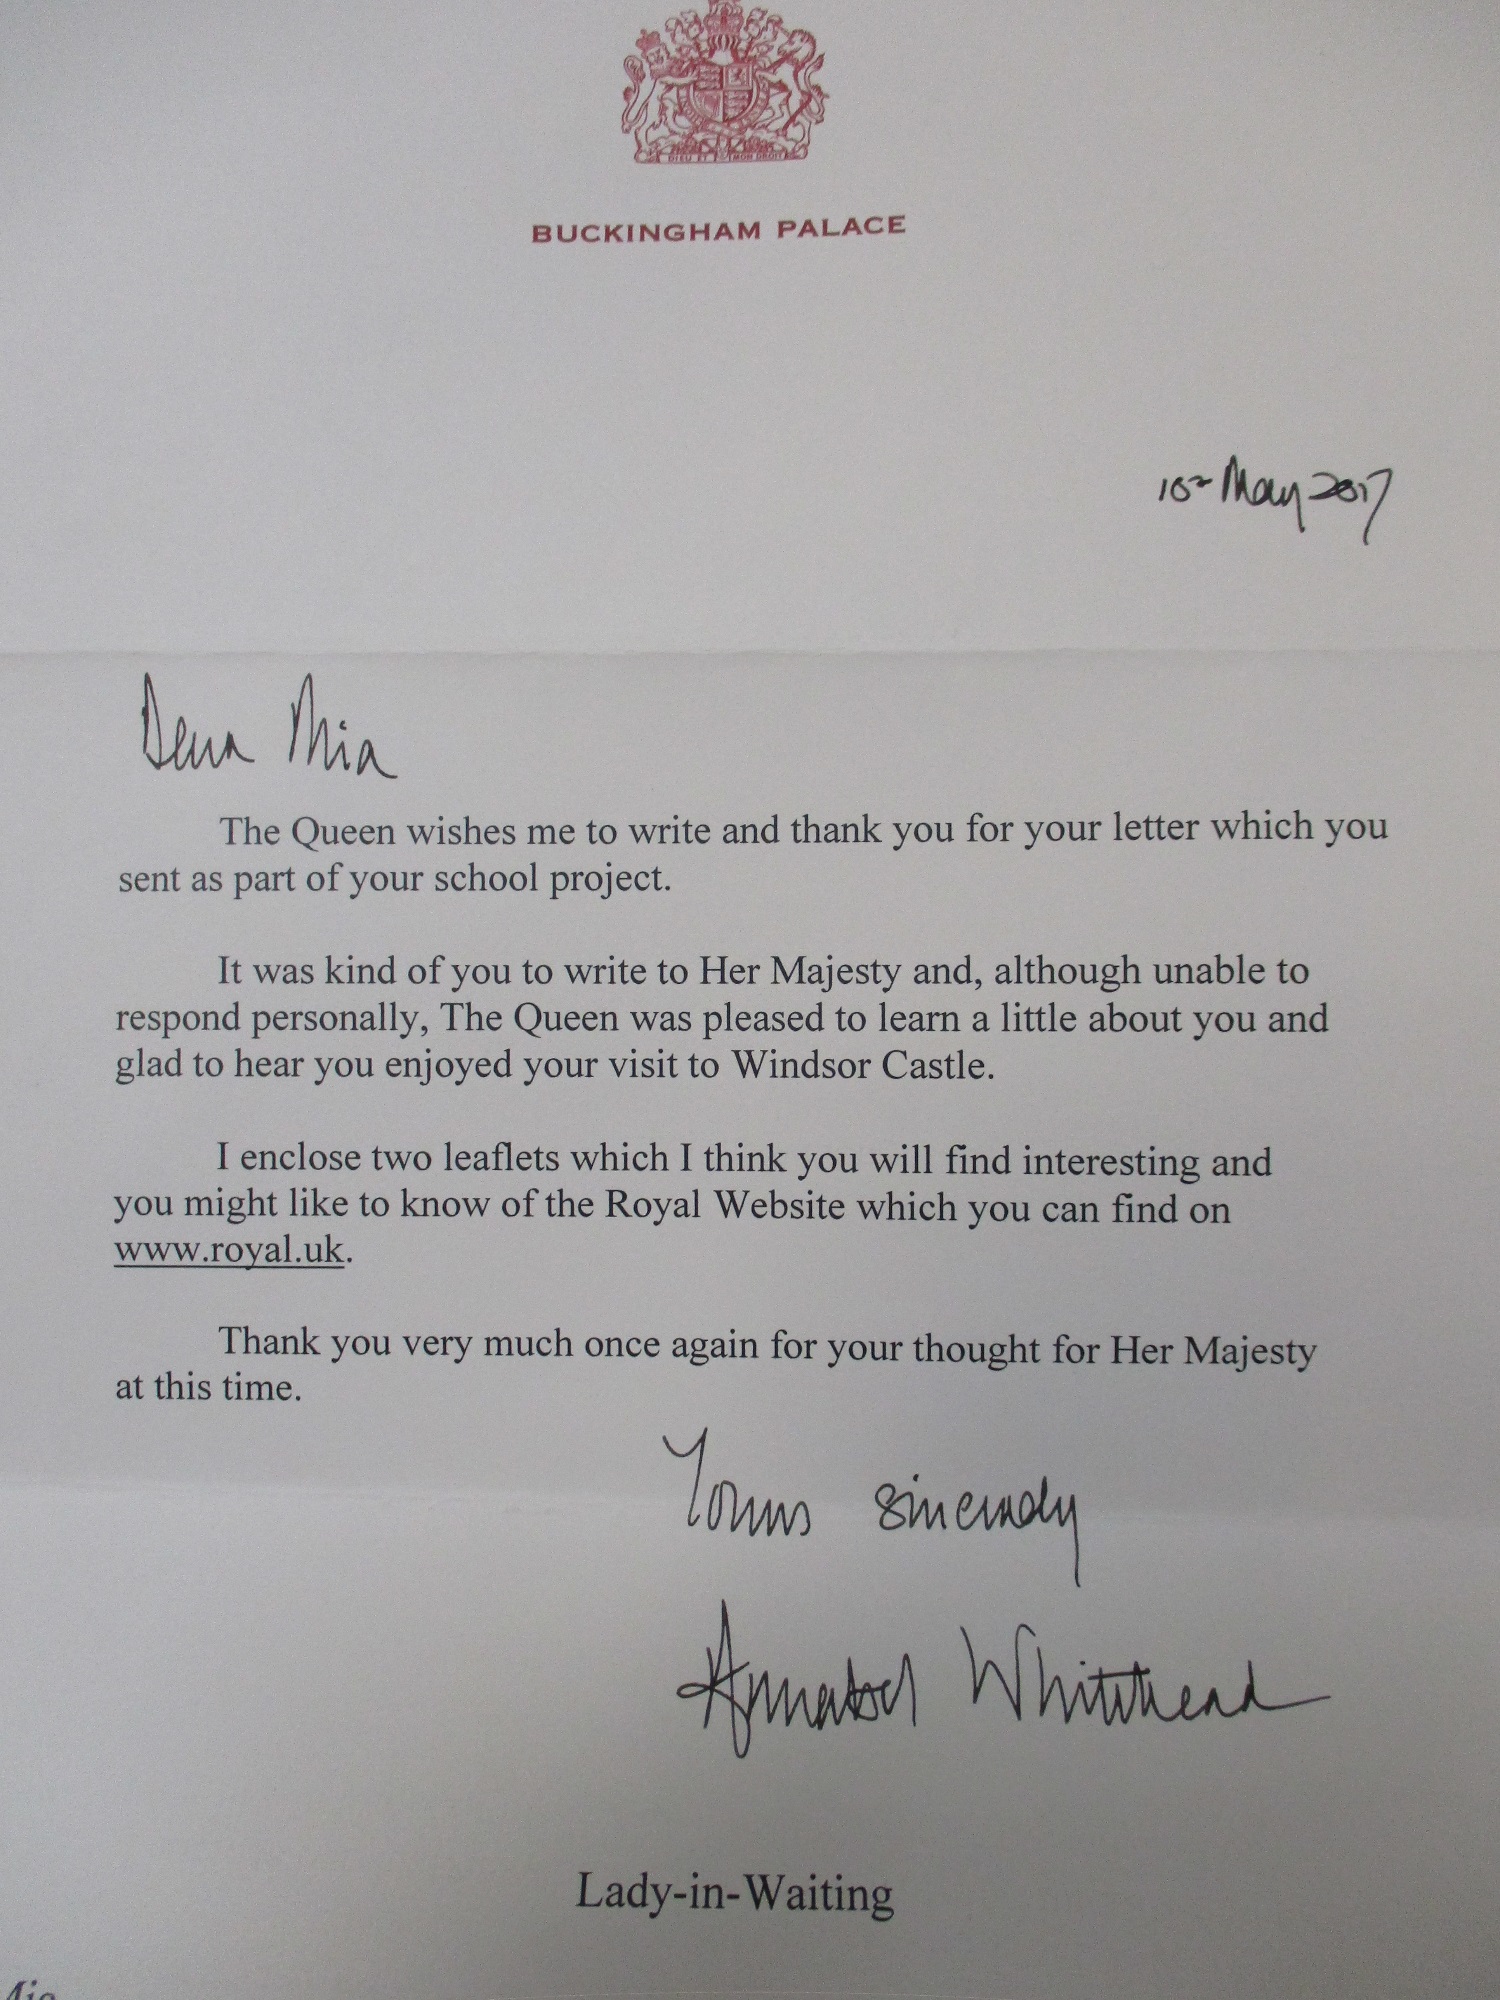 DIEU ET MON DROIT
BUCKINGHAM PALACE
May 2017
Dear Mia
The Queen wishes me to write and thank you for your letter which you
sent as part of your school project.
It was kind of you to write to Her Majesty and, although unable to
respond personally, The Queen was pleased to learn a little about you and
glad to hear you enjoyed your visit to Windsor Castle.
I enclose two leaflets which I think you will find interesting and
you might like to know of the Royal Website which you can find on
www.royal.uk.
Thank you very much once again for your thought for Her Majesty
at this time.
Yours sincerely
Annabel Whitehead
Lady-in-Waiting